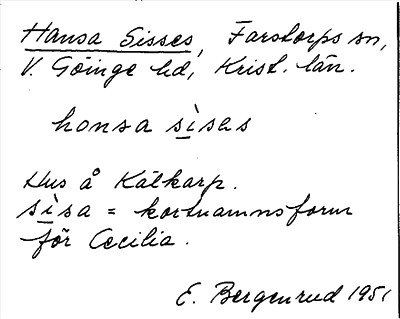 Hansa Sisses, Farstorps sn,
V. Göinge hd, Krist. län.
honsa sìses
Hus å Kälkarp.
sìsa = kortnamnsform
för Cecilia.
E. Bergenrud 1951